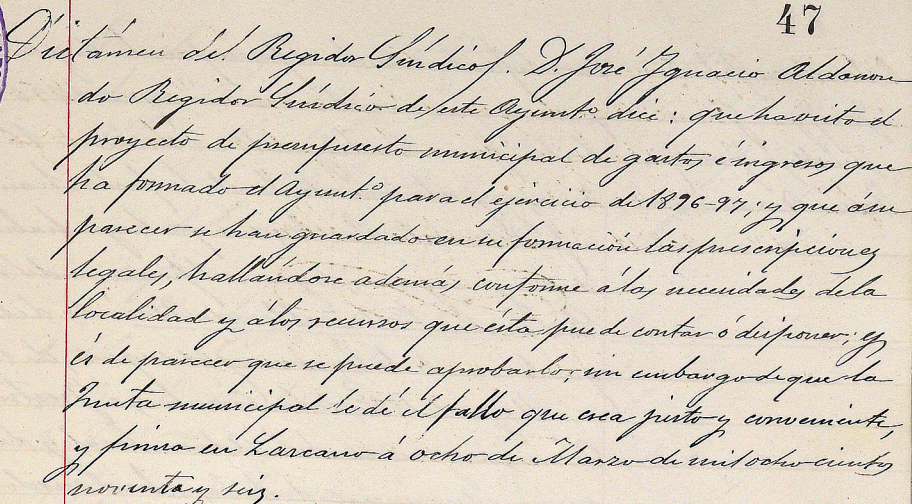 47
Dictámen del Regidor Síndico. D. José Ignacio Aldanon
do Regidor Síndico de este Ayunt.º dice: que ha visto el
proyecto de presupuesto municipal de gastos é ingresos que
ha formado el Ayunt.º para el ejercicio de 1896-97; y que á su
parecer se han guardado en su formación las prescripciones
legales, hallándose además conforme á las necesidades de la
localidad y á los recursos que ésta puede contar ó disponer; y
és de parecer que se puede aprobarlo; sin embargo de que la
Junta municipal le dé el fallo que crea justo y conveniente,
y firma en Lazcano á ocho de Marzo de mil ocho cientos
noventa y seis.